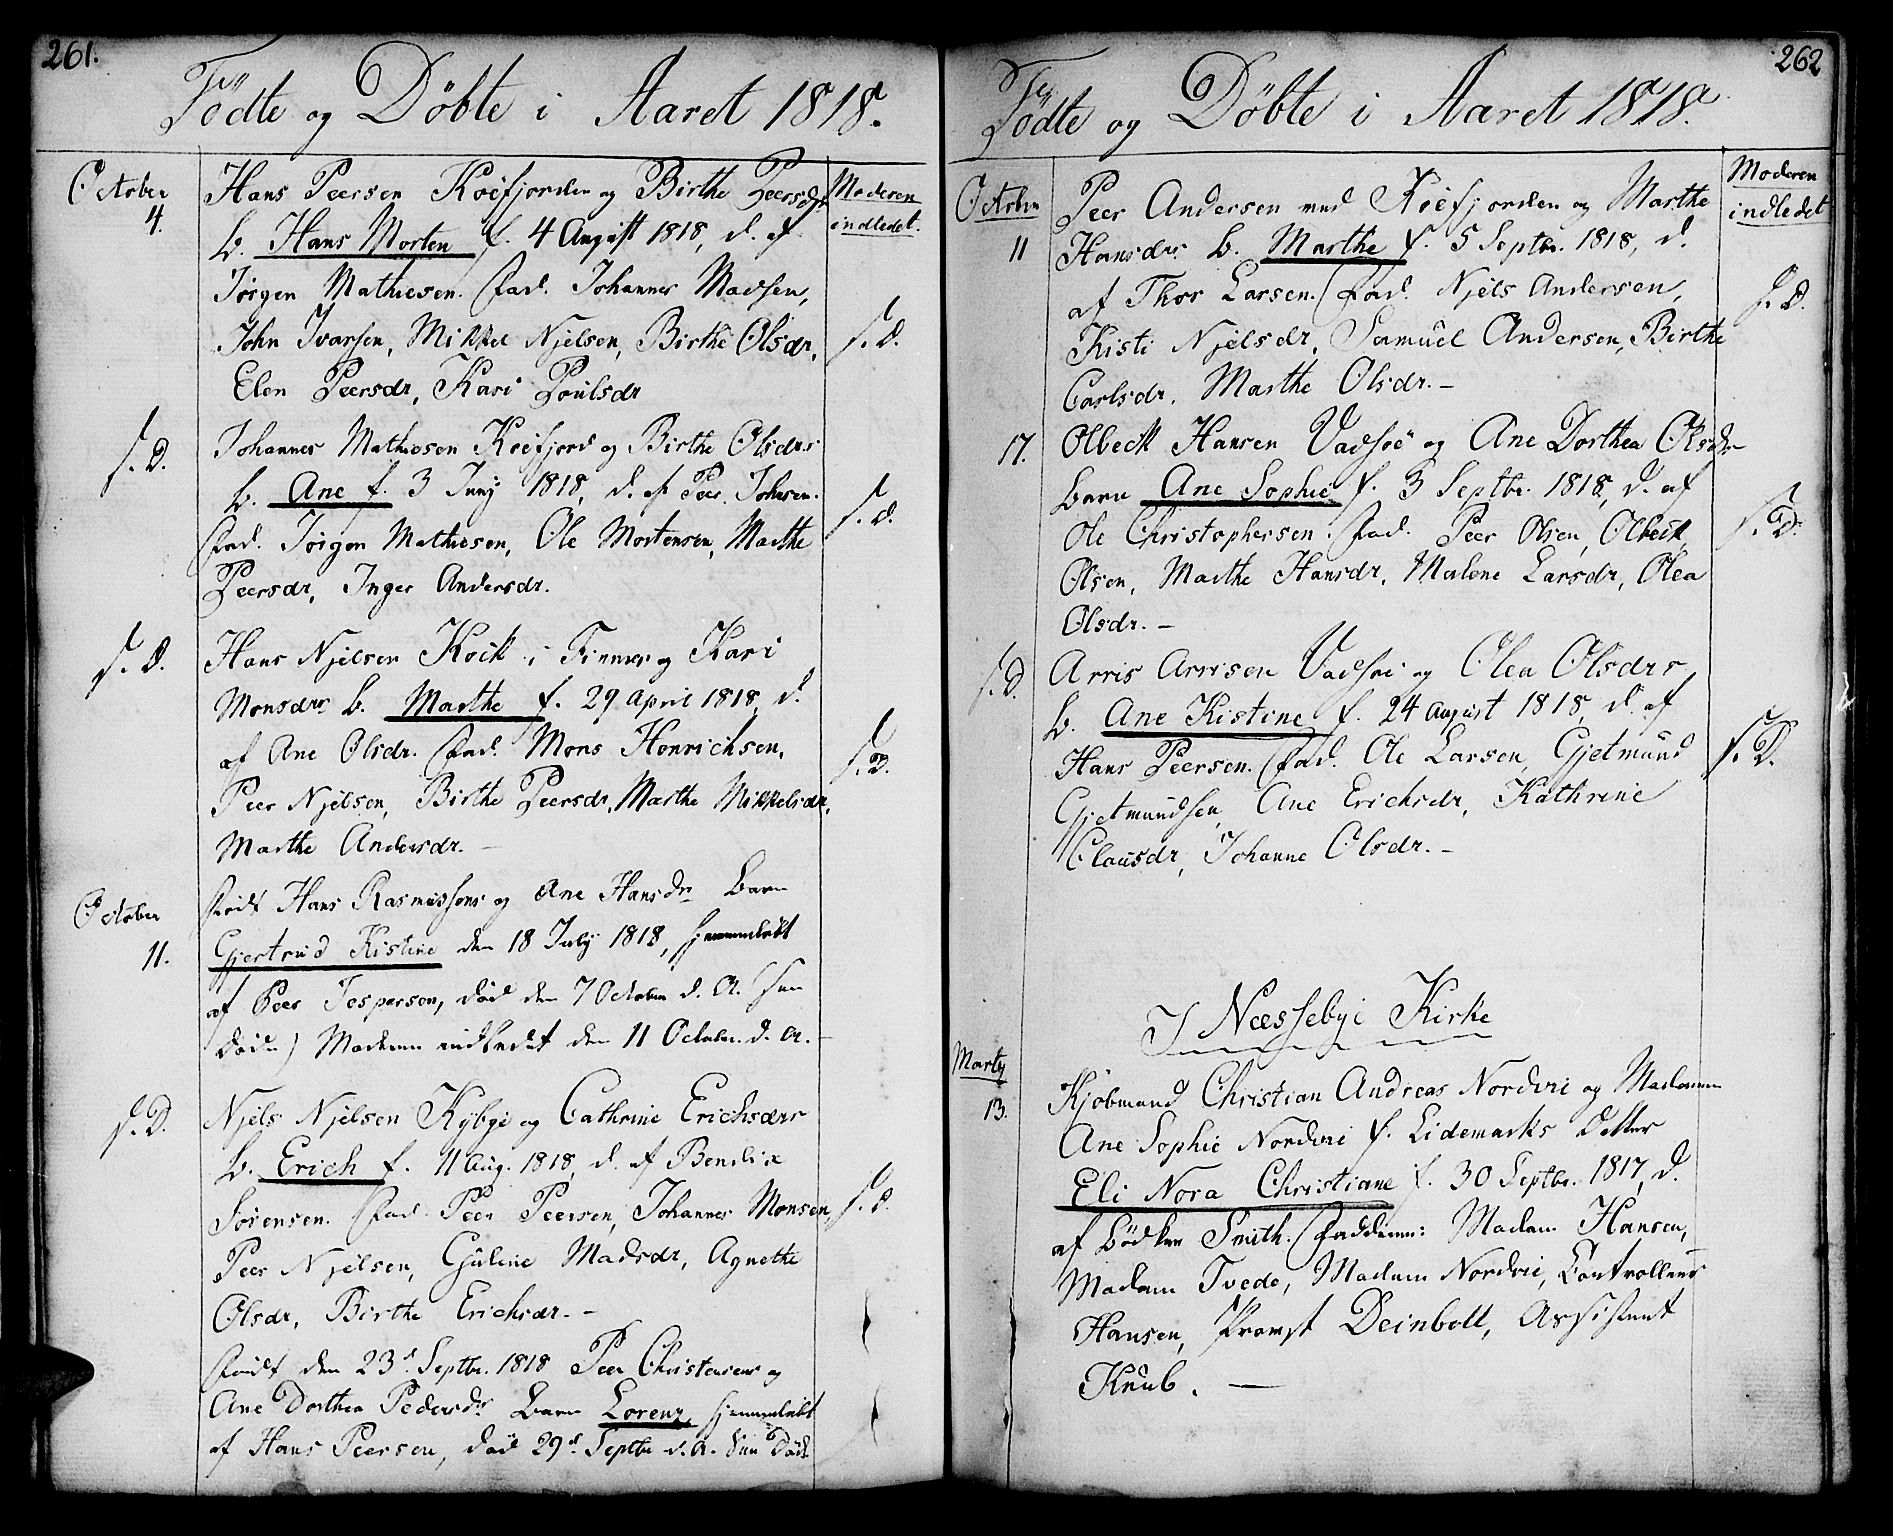 261.
Födte og Döbte i Aaret 1818.
October
4.
Moderen
indledet.
Hans Peersen Koëfjorden og Birthe Peersdr
b. Hans Morten f. 4 August 1818, d. af
Jörgen Mathiesen. Fad. Johannes Madsen,
John Ivarsen, Mikkel Njelsen, Birthe Olsdr,
s. D.
Elen Peersdr, Kari Poulsdr
s. D.
Johannes Mathiesen Koëfjord og Birthe Olsdrs
b. Ane f. 3 Juny 1818, d. af Peer Johnsen.
s. D.
Fad. Jörgen Mathiesen, Ole Mortensen, Marthe
Peersdr, Inger Andersdr.
s. D.
Hans Njelsen Koik i Finmr og Kari
Monsdrs b. Marthe f. 29 April 1818, d.
af Ane Olsdr. Fad. Mons Henrichsen,
s. D.
Peer Njelsen, Birthe Peersdr, Marthe Mikkelsdr,
Marthe Andersdr. –
October
11.
Född Hans Rasmussens og Ane Hansdr Barn
Gjertrud Kistine den 18 July 1818, hjemmedöbt
af Peer Jespersen, död den 7 October d. A.
Moderen indledet den 11 October d. A. –
s. D.
Njels Njelsen Kybye og Cathrine Erichsdrs
b. Erich f. 11 Aug. 1818, d. af Bendix
Sörensen. Fad. Peer Peersen, Johannes Monsen,
s. D.
Peer Njelsen, Gjuline Madsdr, Agnethe
Olsdr, Birthe Erichsdr. –
Född den 23d Septbr. 1818 Peer Christensens og
Ane Dorthea Pedersdr Barn Lorenz, hjemmedöbt
af Hans Peersen, död 29d Septbr d. A.
262
Födte og Döbte i Aaret 1818.
Moderen
indledet
October
11
Peer Andersen ved Koëfjorden og Marthe
Hansdrs b. Marthe f. 5 Septbr. 1818, d.
af Thor Larsen. Fad. Njels Andersen,
s. D.
Kisti Njelsdr, Samuel Andersen, Birthe
Carlsdr, Marthe Olsdr. –
17.
Olbeck Hansen Vadsöe og Ane Dorthea Olsdr
Barn Ane Sophie f. 3 Septbr. 1818, d. af
Ole Christophersen. Fad. Peer Olsen, Olbeck
s. D.
Olsen, Marthe Hansdr, Malene Larsdr, Olea
Olsdr. –
s. D.
Arris Arrisen Vadsöe og Olea Olsdrs
b. Ane Kistine f. 24 August 1818, d. af
Hans Peersen. Fad. Ole Larsen, Gjetmund
s. D.
Gjetmundsen, Ane Erichsdr, Kathrine
Clausdr, Johanne Olsdr. –
I Næssebye Kirke
Marty
13.
Kjöbmand Christian Andreas Nordvie og Madamme
Ane Sophie Nordvie f. Lidemarks Datter
Eli Nora Christiane f. 30 Septbr. 1817, d.
af Bödker Smith. Fadderne: Madam Hansen,
Madam Tvede, Madam Nordvie, Controlleur
Hansen, Provst Deinboll, Assistent
Knub. –